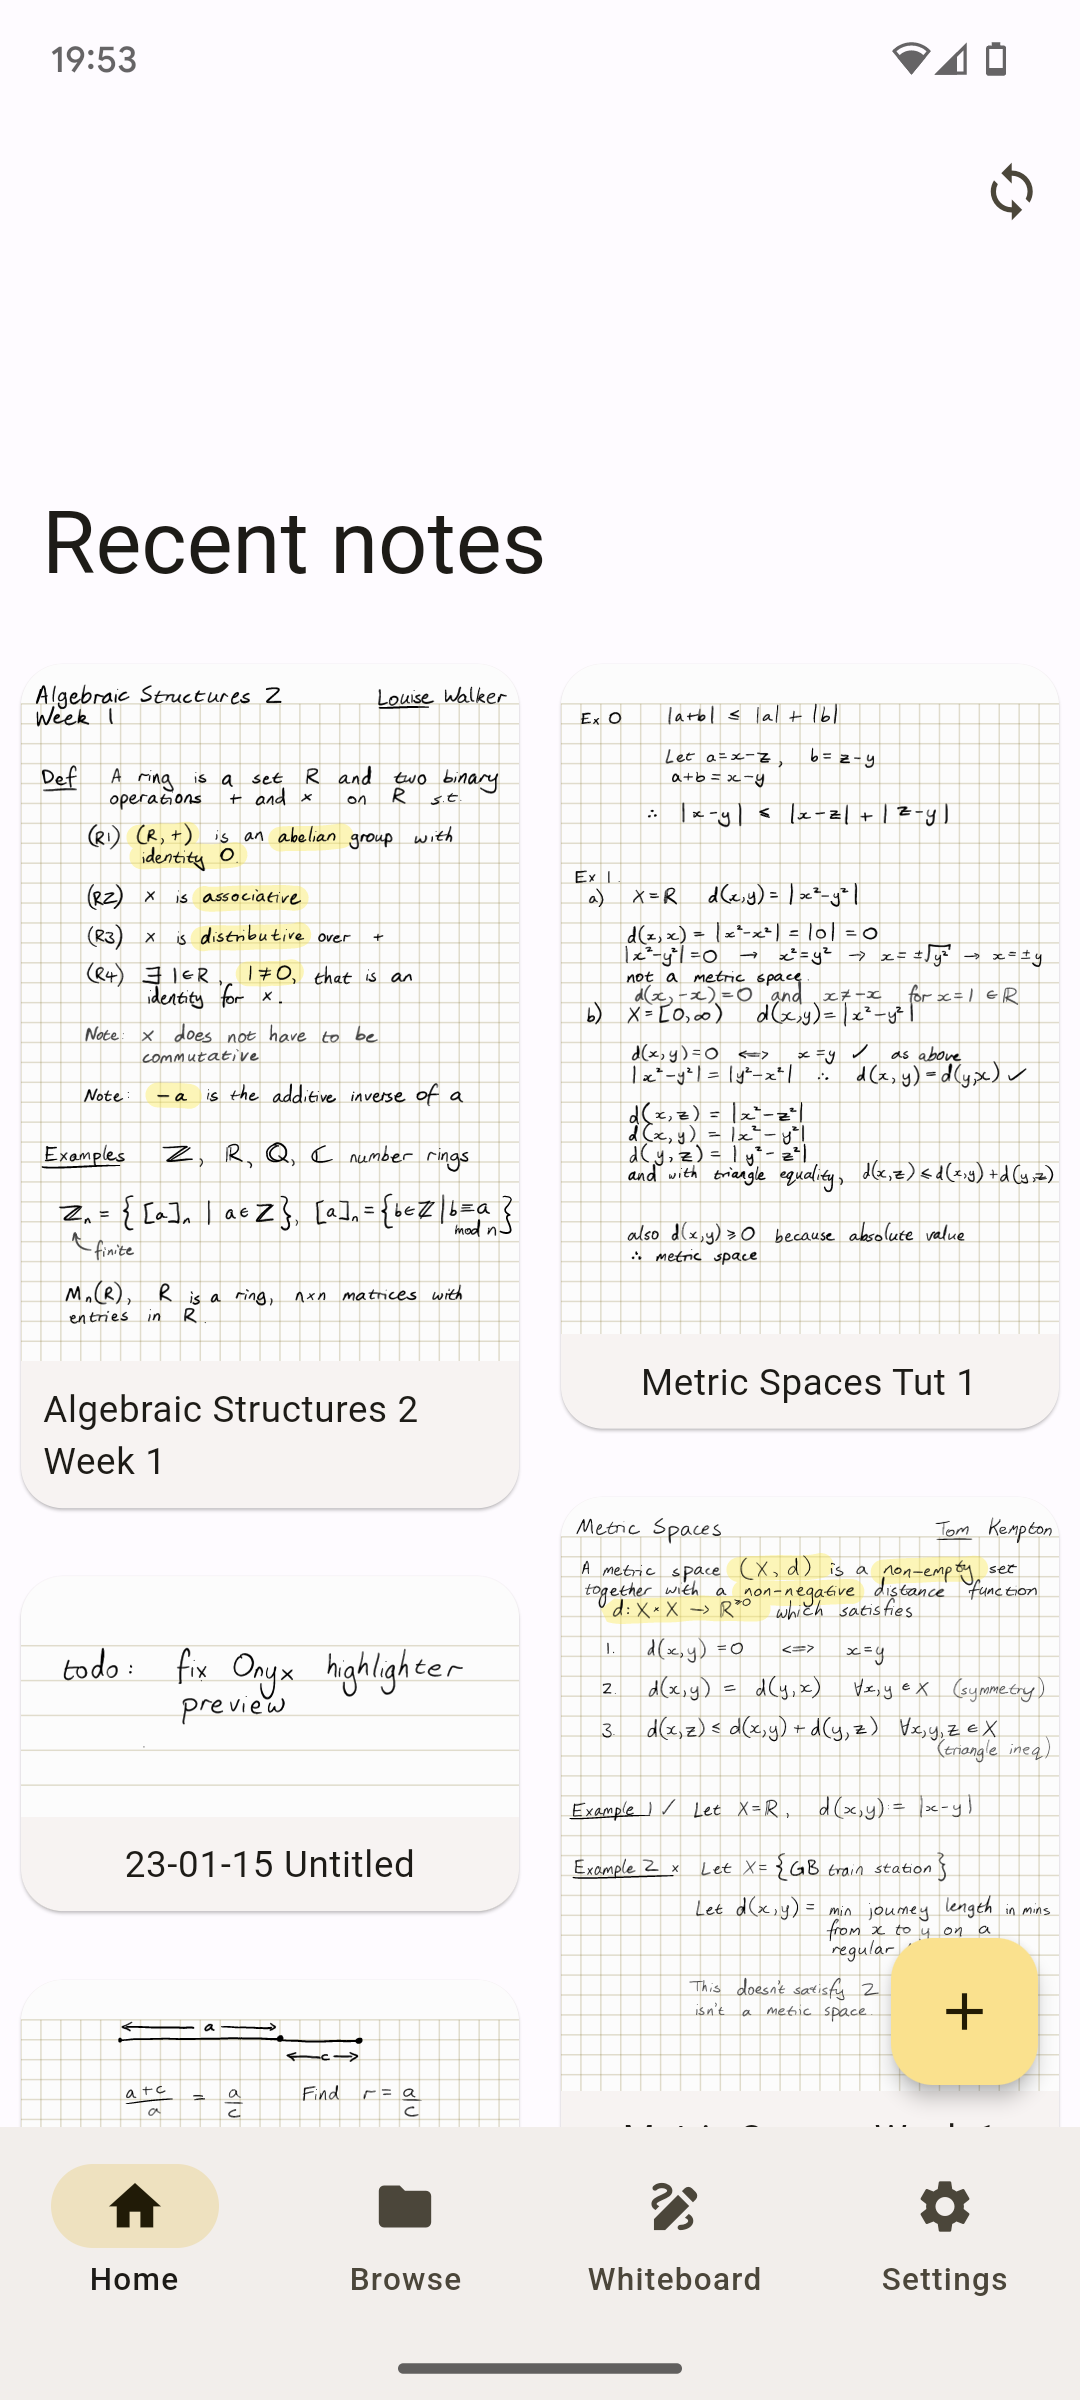 19:53
Recent notes
Algebraic Structures 2 Louise Walker
Week 1
Def A ring is a set R and two binary
operations + and × on R s.t.
(R1) (R, +) is an abelian group with
identity 0.
(R2) × is associative
(R3) × is distributive over +
(R4) ∃ 1∈R, 1≠0, that is an
identity for ×.
Note: × does not have to be
commutative
Note: -a is the additive inverse of a
Examples ℤ, ℝ, ℚ, ℂ number rings
ℤₙ = { [a]ₙ | a∈ℤ }, [a]ₙ = {b∈ℤ | b≡a
mod n }
finite
Mₙ(R), R is a ring, n×n matrices with
entries in R.
Algebraic Structures 2
Week 1
Ex 0 |a+b| ≤ |a| + |b|
Let a=x-z, b=z-y
a+b=x-y
∴ |x-y| ≤ |x-z| + |z-y|
Ex 1.
a) X=ℝ d(x,y) = |x²-y²|
d(x,x) = |x²-x²| = |0| = 0
|x²-y²|=0 → x²=y² → x=±√y² → x=±y
not a metric space.
d(x,-x)=0 and x≠-x for x=1 ∈ℝ
b) X=[0,∞) d(x,y)=|x²-y²|
d(x,y)=0 <=> x=y ✓ as above
|x²-y²| = |y²-x²| ∴ d(x,y)=d(y,x) ✓
d(x,z) = |x²-z²|
d(x,y) = |x²-y²|
d(y,z) = |y²-z²|
and with triangle equality, d(x,z)≤d(x,y)+d(y,z)
also d(x,y)≥0 because absolute value
∴ metric space
Metric Spaces Tut 1
todo: fix Onyx highlighter
preview
23-01-15 Untitled
Metric Spaces Tom Kempton
A metric space (X, d) is a non-empty set
together with a non-negative distance function
d: X×X → ℝ≥⁰ which satisfies
1. d(x,y) = 0 <=> x=y
2. d(x,y) = d(y,x) ∀x,y ∈ X (symmetry)
3. d(x,z) ≤ d(x,y) + d(y,z) ∀x,y,z ∈ X
(triangle ineq)
Example 1 ✓ Let X=ℝ, d(x,y) = |x-y|
Example 2 × Let X= {GB train station}
Let d(x,y) = min journey length in mins
from x to y on a
regular
This doesn't satisfy 2
isn't a metric space.
a
c
a+c/a = a/c Find r = a/c
Home
Browse
Whiteboard
Settings